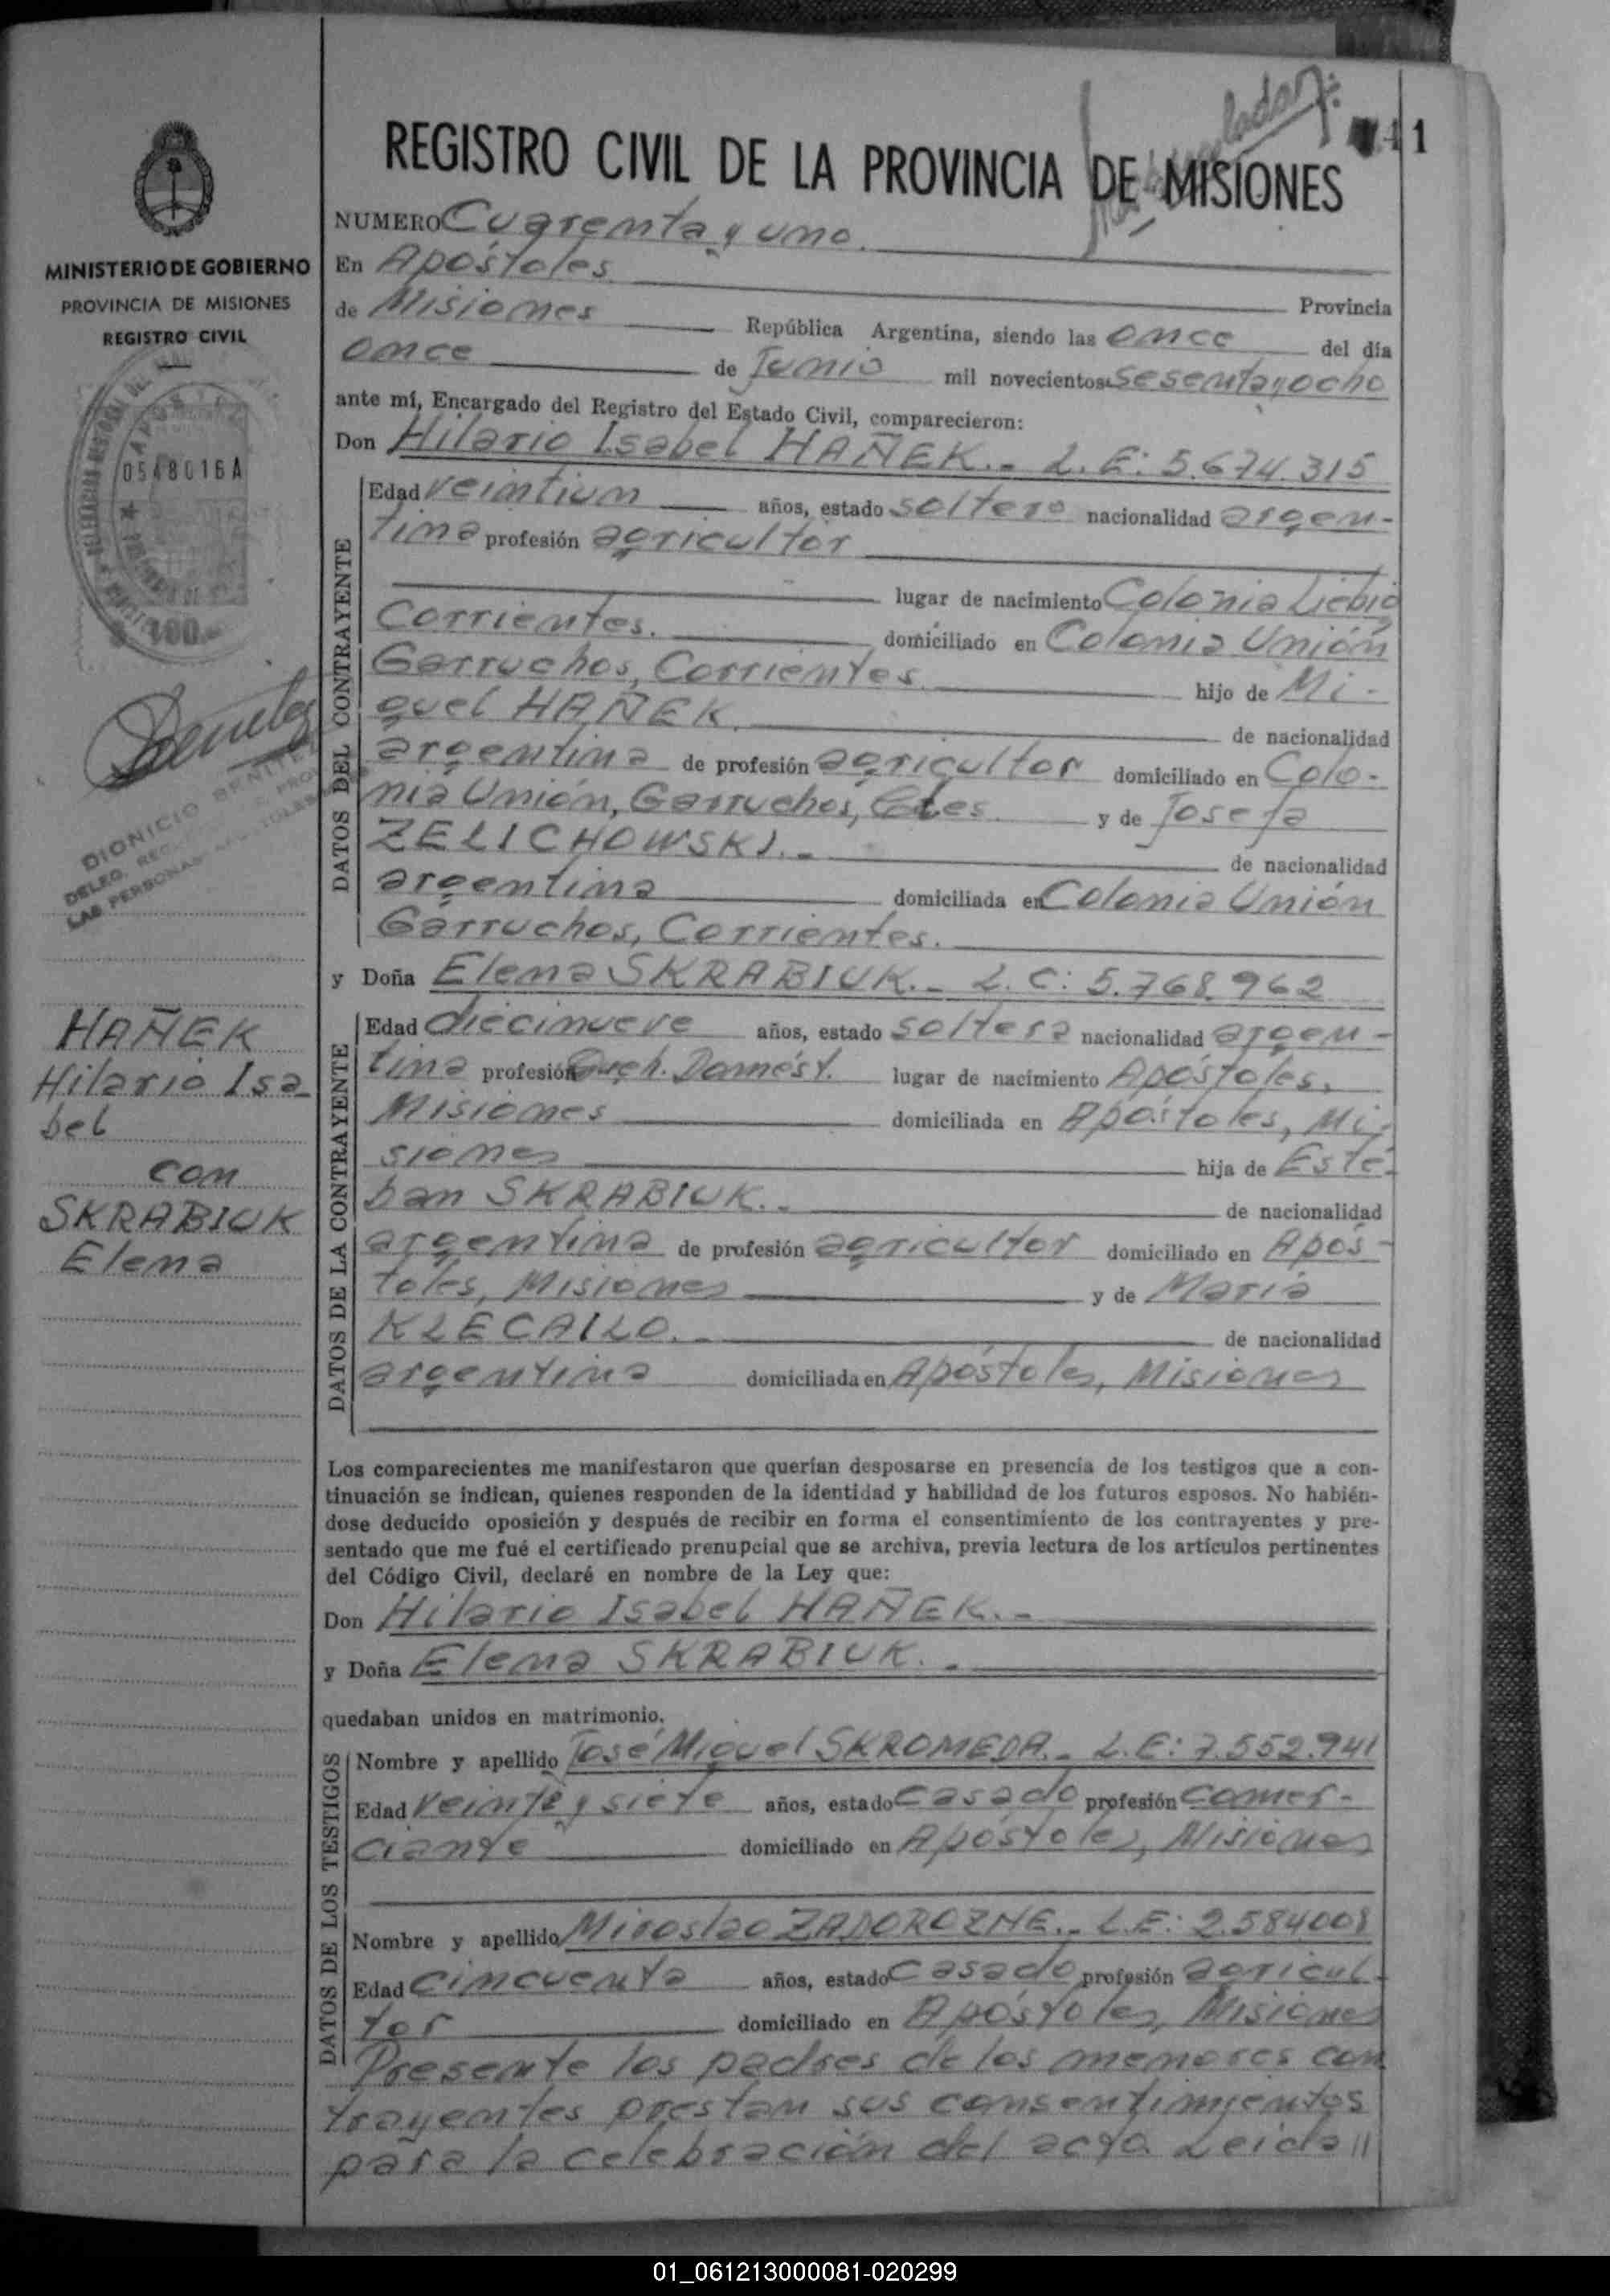 REGISTRO CIVIL DE LA PROVINCIA DE MISIONES
41
MINISTERIO DE GOBIERNO
PROVINCIA DE MISIONES
REGISTRO CIVIL
0548016A
DIONICIO BENITEZ
HAÑEK
Hilario Isa
bel
con
SKRABIUK
Elena
NUMERO Cuarenta y uno.
En Apóstoles Provincia
de Misiones República Argentina, siendo las once del día
once de Junio mil novecientos sesentayocho
ante mí, Encargado del Registro del Estado Civil, comparecieron:
Don Hilario Isabel HAÑEK.- L.E: 5.674.315
DATOS DEL CONTRAYENTE
Edad veintiun años, estado soltero nacionalidad argen-
tina profesión agricultor
lugar de nacimiento Colonia Liebig
Corrientes. domiciliado en Colonia Unión
Garruchos, Corrientes hijo de Mi-
guel HAÑEK. de nacionalidad
argentina de profesión agricultor domiciliado en Colo-
nia Unión, Garruchos, Ctes y de Josefa
ZELICHOWSKI.- de nacionalidad
argentina domiciliada en Colonia Unión
Garruchos, Corrientes.
y Doña Elena SKRABIUK.- L.C: 5.768.962
DATOS DE LA CONTRAYENTE
Edad diecinueve años, estado soltera nacionalidad argen-
tina profesión Domést. lugar de nacimiento Apóstoles,
Misiones domiciliada en Apóstoles, Mi-
siones hija de Este-
ban SKRABIUK.- de nacionalidad
argentina de profesión agricultor domiciliado en Após-
toles, Misiones y de María
KLECAILO.- de nacionalidad
argentina domiciliada en Apóstoles, Misiones
Los comparecientes me manifestaron que querían desposarse en presencia de los testigos que a con-
tinuación se indican, quienes responden de la identidad y habilidad de los futuros esposos. No habién-
dose deducido oposición y después de recibir en forma el consentimiento de los contrayentes y pre-
sentado que me fué el certificado prenupcial que se archiva, previa lectura de los artículos pertinentes
del Código Civil, declaré en nombre de la Ley que:
Don Hilario Isabel HAÑEK.-
y Doña Elena SKRABIUK.-
quedaban unidos en matrimonio.
DATOS DE LOS TESTIGOS
Nombre y apellido José Miguel SKROMEDA.- L.E: 7.552.941
Edad veinte y siete años, estado casado profesión comer-
ciante domiciliado en Apóstoles, Misiones
Nombre y apellido Miroslao ZADOROZNE.- L.E: 2.584008
Edad cincuenta años, estado casado profesión agricul-
tor domiciliado en Apóstoles, Misiones
Presente los padres de los menores con
trayentes prestan sus consentimientos
para la celebración del acta. Leida //
01_061213000081-020299